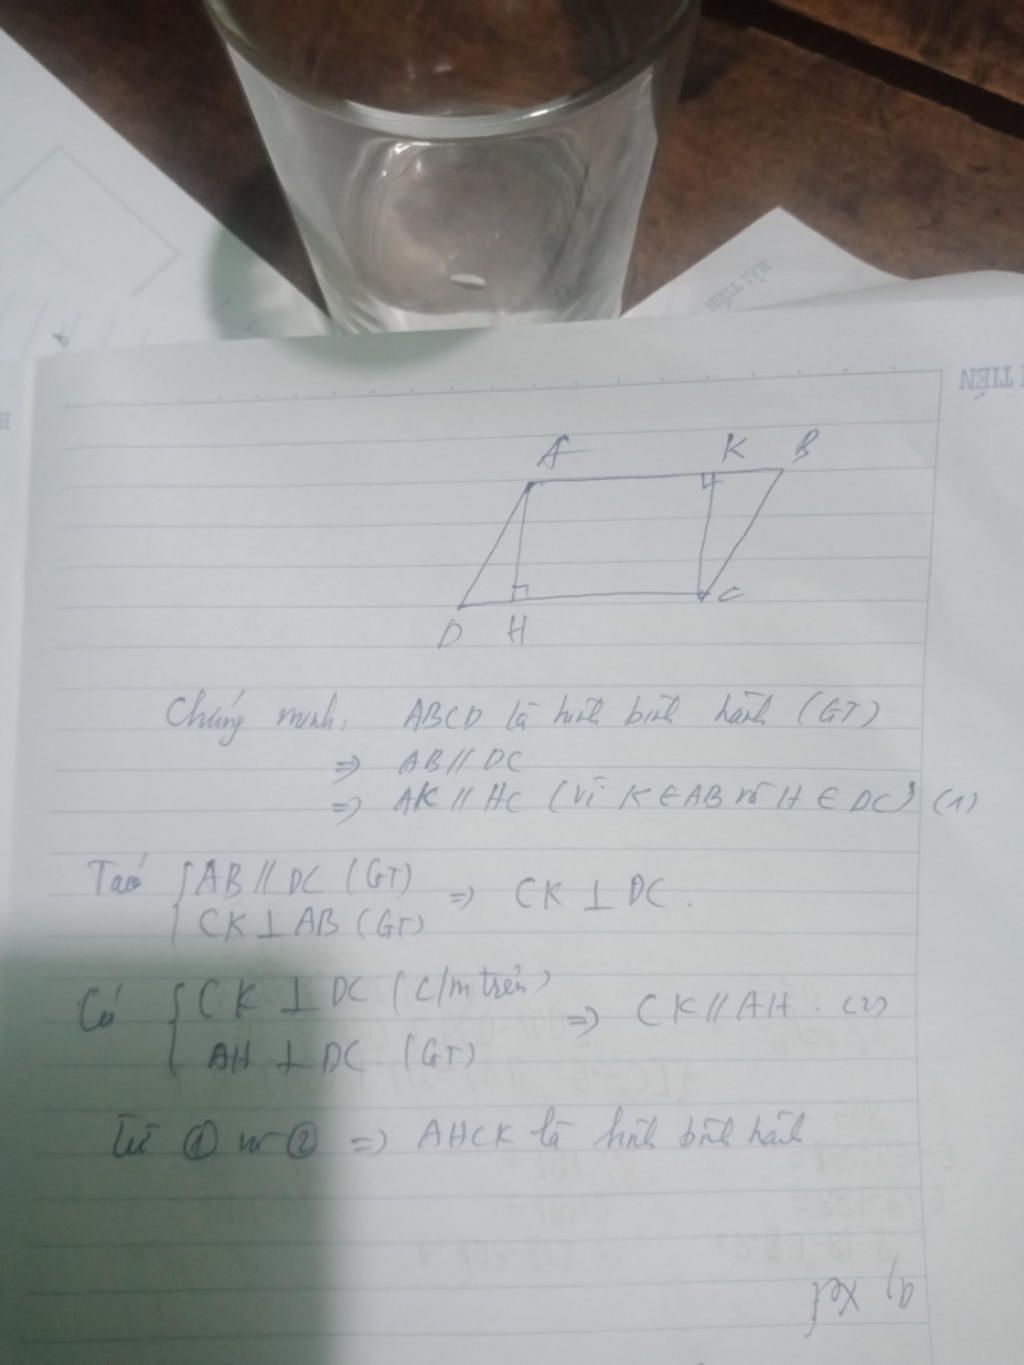 HẢI TIẾN
I TIẾN
A K B
D H C
Chứng minh: ABCD là hình bình hành (GT)
=> AB // DC
=> AK // HC (vì K ∈ AB và H ∈ DC) (1)
Ta có { AB // DC (GT)
CK ⊥ AB (GT) => CK ⊥ DC.
Có { CK ⊥ DC (c/m trên)
AH ⊥ DC (GT) => CK // AH. (2)
Từ ① và ② => AHCK là hình bình hành
a) Xét